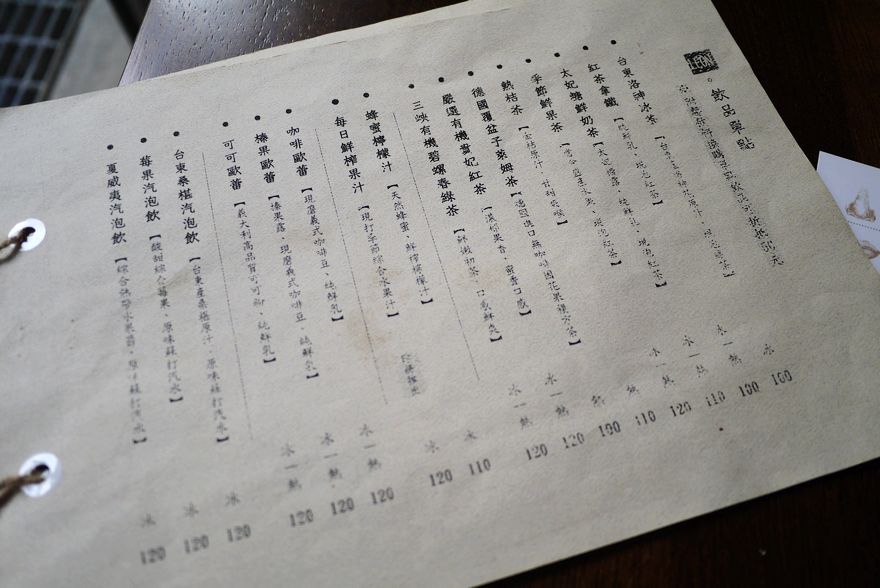 LEON
飲品單點
可折抵50元
台東洛神冰茶【台東產洛神花原汁、現泡綠茶】 冰 100
紅茶拿鐵【純鮮乳、現泡紅茶】 冰|熱 100
太妃糖鮮奶茶【太妃糖露、純鮮乳、現泡紅茶】 冰|熱 110
季節鮮果茶 現泡紅茶】 冰|熱 120
熱桔茶【金桔原汁、甘利潤喉】 熱 110
德國覆盆子萊姆茶【德國進口無咖啡因花果複方茶】 熱 100
嚴選有機蜜妃紅茶【濃郁果香、蜜香口感】 冰|熱 120
三峽有機碧螺春綠茶【鮮嫩初茶、口感鮮爽】 冰|熱 120
蜂蜜檸檬汁【天然蜂蜜、鮮榨檸檬汁】 冰 110
每日鮮榨果汁【現打季節綜合水果汁】 冰 120
咖啡歐蕾【現磨義式咖啡豆、純鮮乳】 冰|熱 120
榛果歐蕾【榛果露、現磨義式咖啡豆、純鮮乳】 冰|熱 120
可可歐蕾【義大利高品質可可粉、純鮮乳】 冰|熱 120
台東桑椹汽泡飲【台東產桑椹原汁、原味蘇打汽水】 冰 120
莓果汽泡飲【酸甜綜合莓果、原味蘇打汽水】 冰 120
夏威夷汽泡飲【綜合熱帶水果醬、原味蘇打汽水】 冰 120